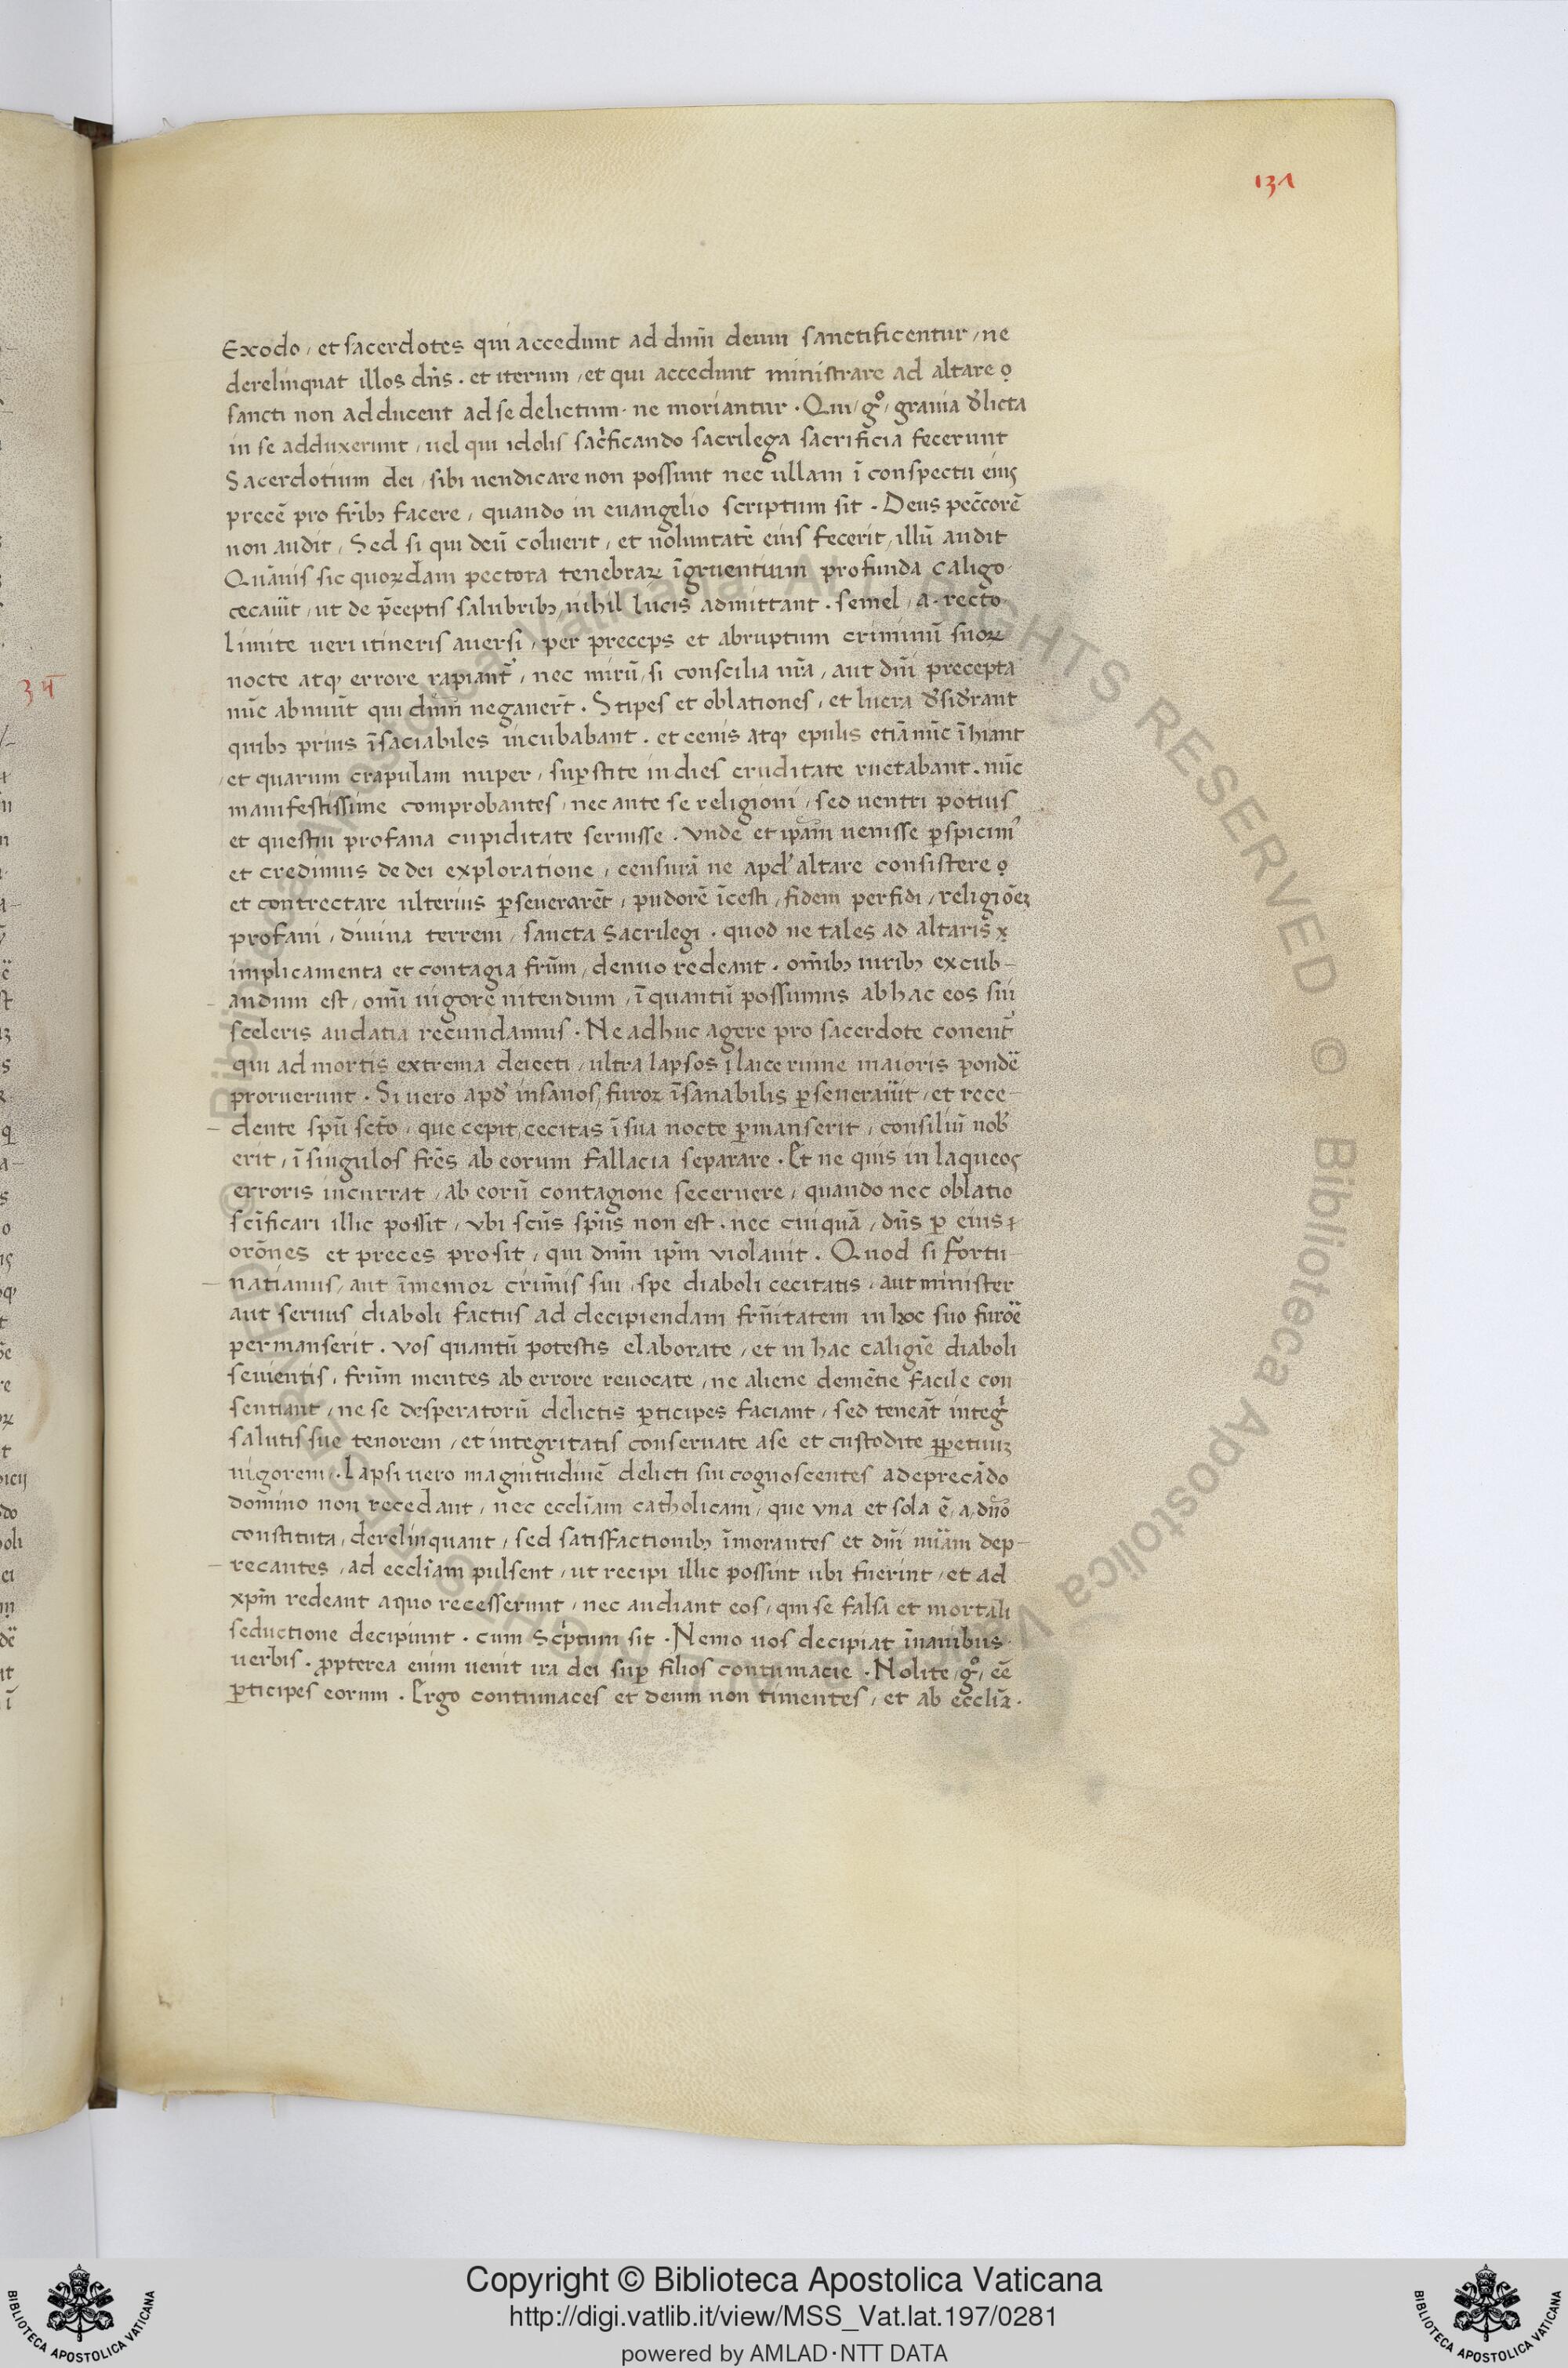 131
Exodo / et sacerdotes qui accedunt ad dnm̄ deum sanctificentur / ne
derelinquat illos dn̄s . et iterum / et qui accedunt ministrare ad altare
sancti non adducent ad se delictum . ne moriantur . Qui / gº / grauia d'licta
in se adduxerunt / uel qui idolis sac'ficando sacrilega sacrificia fecerunt
Sacerdotium dei / sibi uendicare non possunt nec ullam ī conspectu eius
precē pro frībꝫ facere / quando in euangelio scriptum sit . Deus pecc̄orē
non audit / Sed si qui deū coluerit / et uoluntatē eius fecerit / illū audit
Quāuis sic quorꝫdam pectora tenebraꝝ īgruentium profunda caligo
cecauīt / ut de p̄ceptis salubribꝫ nihil lucis admittant . semel / a recto
limite ueri itineris auersi / per preceps et abruptum criminū suoꝝ
nocte atqꝫ errore rapiant᷑ / nec mirū / si conscilia nr̄a / aut dnī precepta
nūc abnuūt qui dnm̄ negauert̄ . Stipes et oblationes / et lucra d'sid'rant
quibꝫ prius īsaciabiles incubabant . et cenis atqꝫ epulis etiā nūc īhiant
/ et quarum crapulam nuper / suꝑstite in dies cruditate ructabant . nūc
manifestissime comprobantes / nec ante se religioni / sed uentri potius
et questui profana cupiditate seruisse . Vnde et ip̄am uenisse ꝑspicim᷒
et credimus de dei exploratione / censurā ne apd' altare consistere
et contrectare ulterius ꝑseuerarēt / pudorē īcesti / fidem perfidi / religiōeꝫ
profani / diuina terreni / sancta Sacrilegi . quod ne tales ad altaris
implicamenta et contagia frūm / denuo redeant . om̄ibꝫ uiribꝫ excub-
andum est / omī uigore nitendum / ī quantū possumus ab hac eos sui
sceleris audatia recundamus . Ne adhuc agere pro sacerdote conent᷑
qui ad mortis extrema deiecti / ultra lapsos ī laice ruine maioris pondē
proruerunt . Si uero apd' insanos / furoꝛ īsanabilis ꝑseuerauīt / et rece-
dente spū scto / que cepit / cecitas ī sua nocte ꝑmanserit / consiliū nob'
erit / ī singulos frēs ab eorum fallacia separare . Et ne quis in laqueos
erroris incurrat / ab eorū contagione secernere / quando nec oblatio
scīficari illic possit / vbi scūs spūs non est . nec cuiquā / dn̄s ꝑ eius
orōnes et preces prosit / qui dnm̄ ip̄m violauit . Quod si fortu-
natianus / aut īmemoꝛ crimīs sui / spe diaboli cecitatis / aut minister
aut seruus diaboli factus ad decipiendam frn̄itatem in hoc suo furōe
permanserit . vos quantū potestis elaborate / et in hac caligīe diaboli
seuientis / frūm mentes ab errore reuocate / ne aliene demētie facile con
sentiant / ne se desperatorū delictis ꝑticipes faciant / sed teneāt integ'
salutis sue tenorem / et integritatis conseruate a se et custodite ꝑpetuuꝫ
uigorem . Lapsi uero magnitudinē delicti sui cognoscentes a deprecādo
domino non recedant / nec eccliam catholicam / que vna et sola ē / a dn̄o
constituta / derelinquant / sed satisfactionibꝫ īmorantes et dnī mīam dep-
recantes / ad eccliam pulsent / ut recipi illic possint ubi fuerint / et ad
xpm̄ redeant a quo recesserunt / nec audiant eos / qui se falsa et mortali
seductione decipiunt . cum Sc'ptum sit . Nemo uos decipiat īnanibus
uerbis . ꝓpterea enim uenit ira dei suꝑ filios contumacie . Nolite / gº / eē
ꝑticipes eorum . Ergo contumaces et deum non timentes / et ab ecclīa .
Copyright © Biblioteca Apostolica Vaticana
http://digi.vatlib.it/view/MSS_Vat.lat.197/0281
powered by AMLAD·NTT DATA